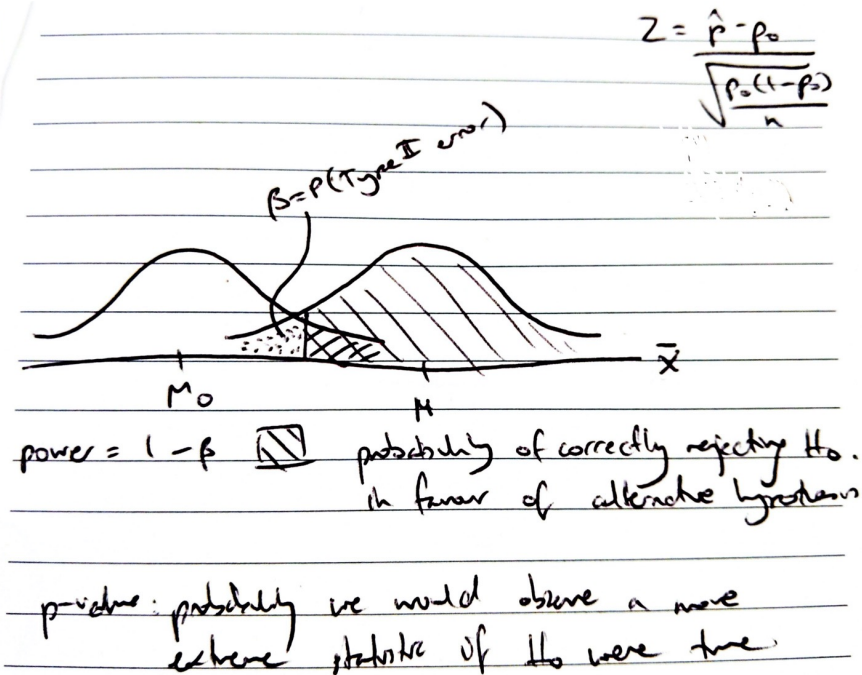 Z = p̂ - p₀
√ p₀(1-p₀)
n
β = P(Type II error)
x̄
μ₀
μ
power = 1 - β probability of correctly rejecting H₀.
in favour of alternative hypothesis
p-value: probability we would observe a more
extreme statistic if H₀ were true